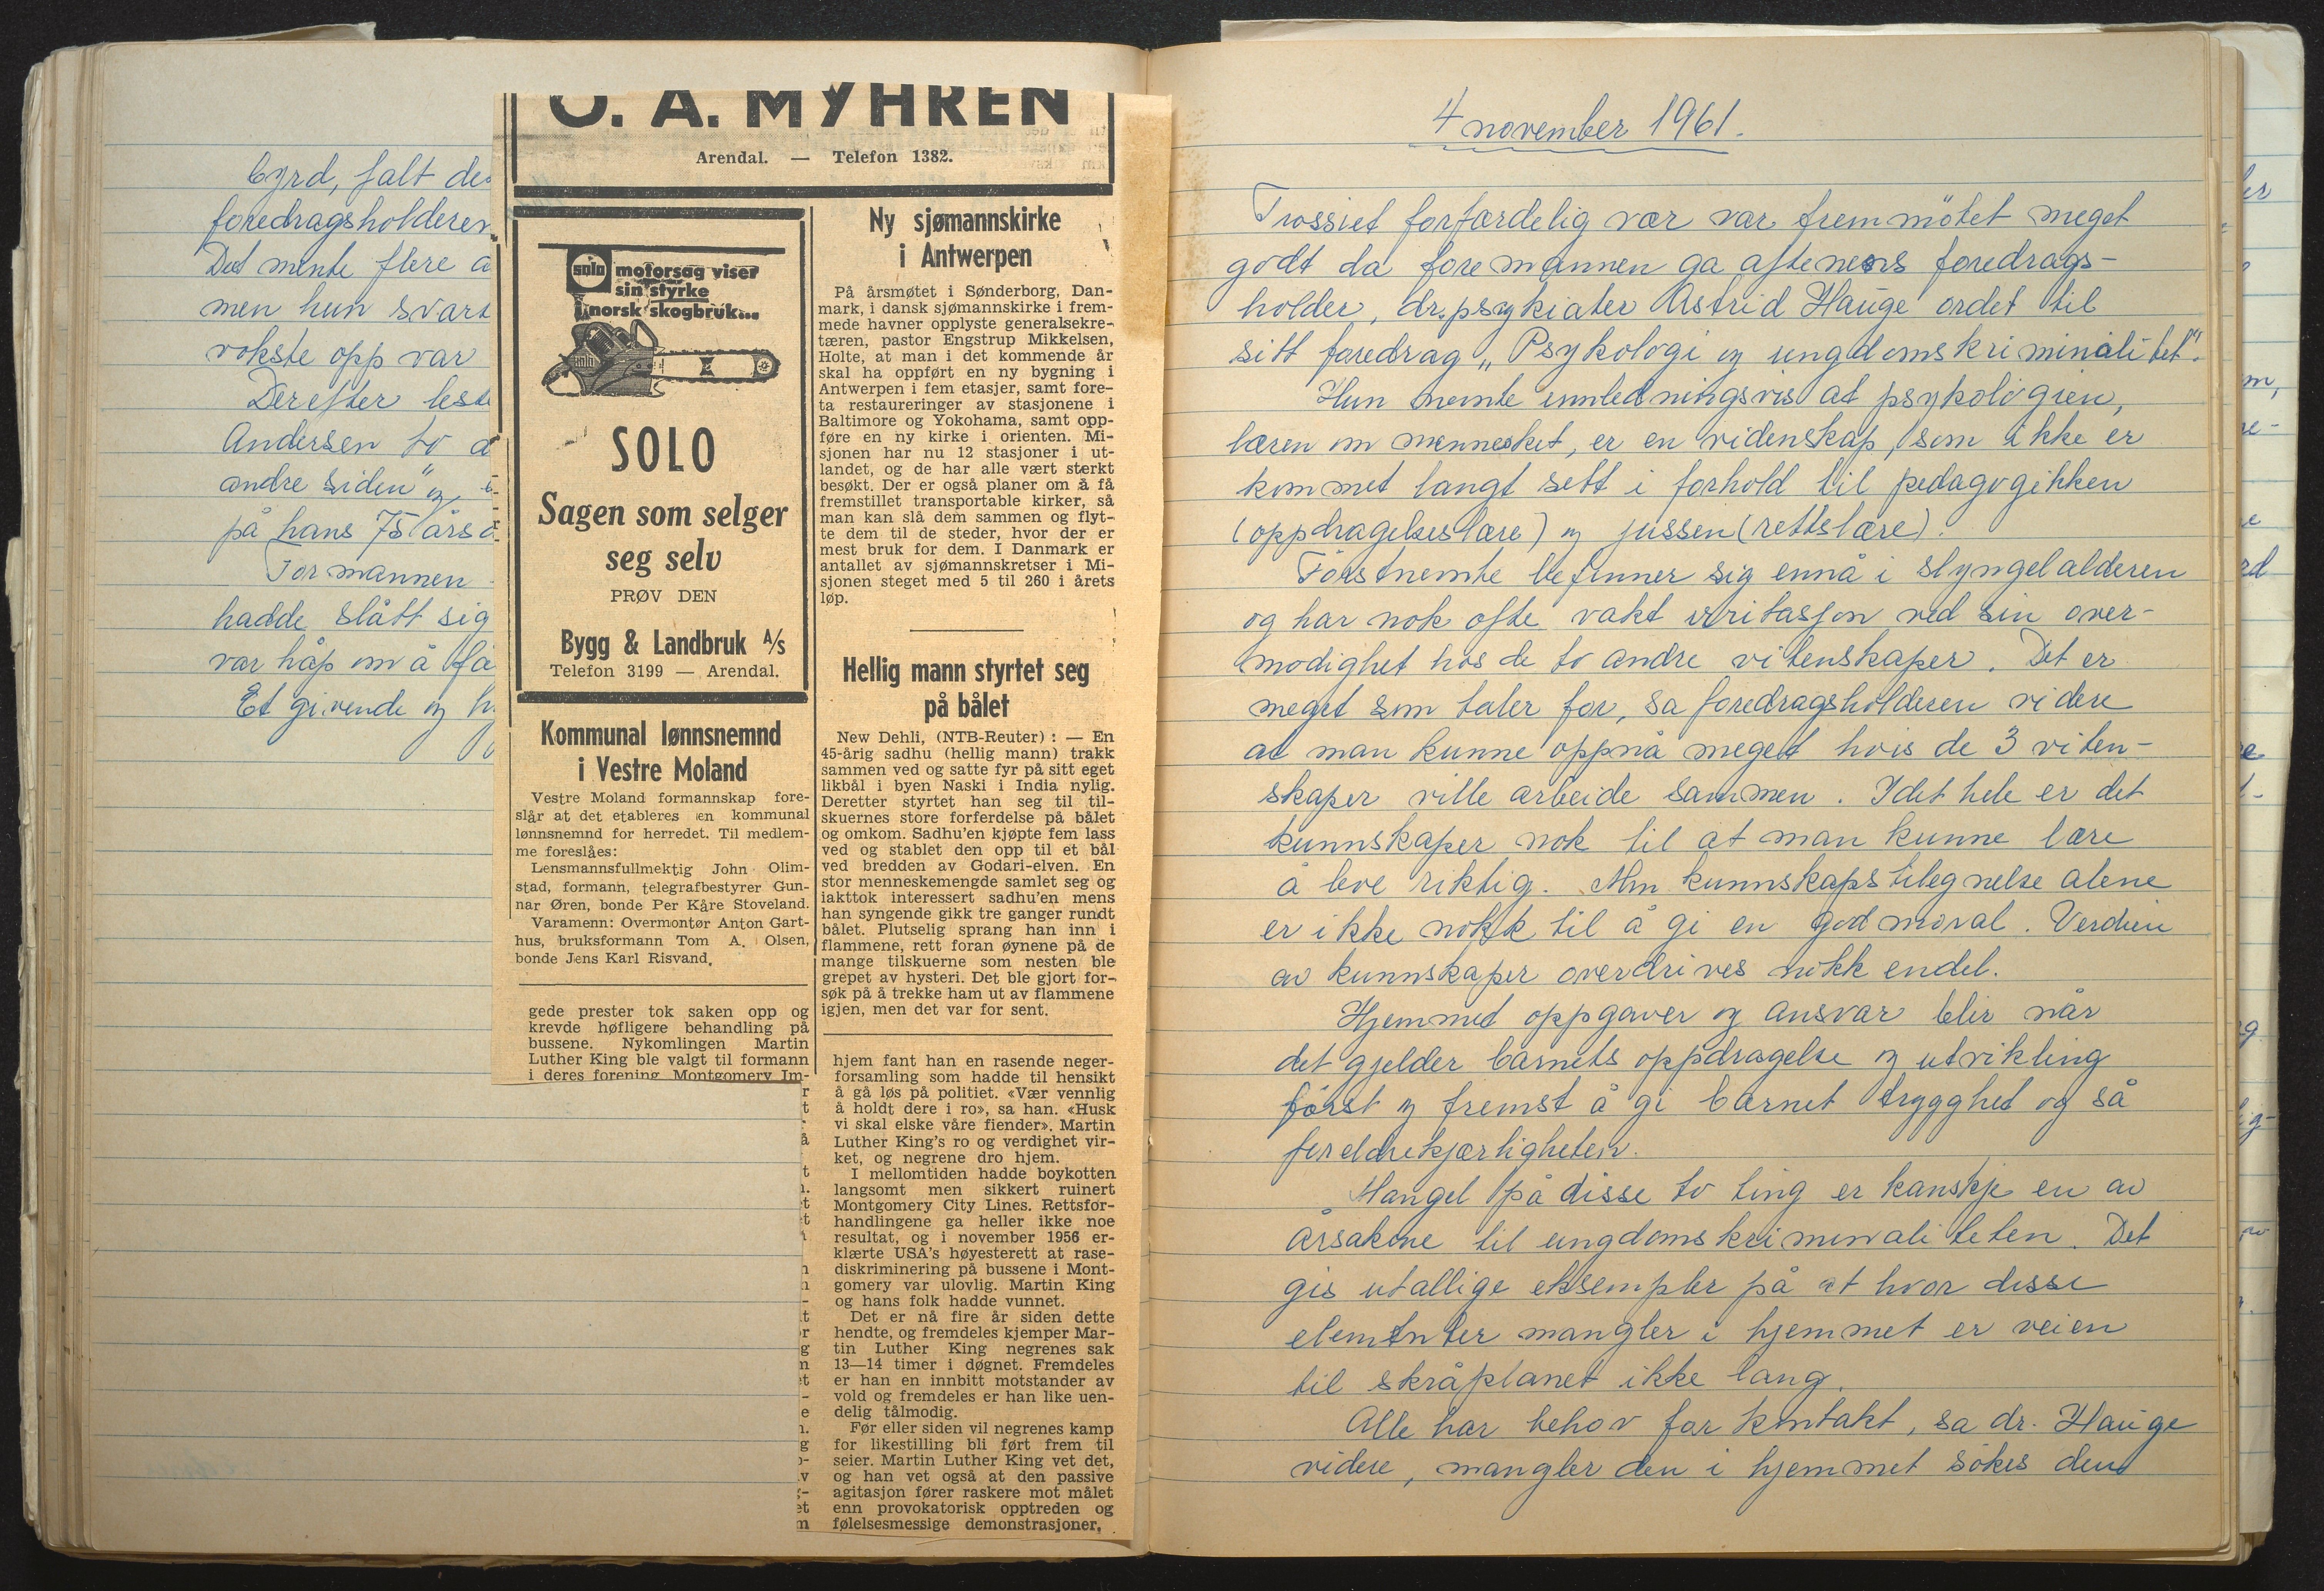 byrd, falt de
foredragsholderen
Det mente flere a
men hun svart
vokste opp var
Derefter leste
Andersen to d
andre siden" og
på hans 75 års d
Formannen
hadde slått sig
var håp om å få
Et givende og h
O. A. MYHREN
Arendal. — Telefon 1382.
solo motorsag viser
sin styrke
i norsk skogbruk...
SOLO
Sagen som selger
seg selv
PRØV DEN
Bygg & Landbruk A/S
Telefon 3199 — Arendal.
Kommunal lønnsnemnd
i Vestre Moland
Vestre Moland formannskap fore-
slår at det etableres en kommunal
lønnsnemnd for herredet. Til medlem-
me foreslåes:
Lensmannsfullmektig John Olim-
stad, formann, telegrafbestyrer Gun-
nar Øren, bonde Per Kåre Stoveland.
Varamenn: Overmontør Anton Gart-
hus, bruksformann Tom A. Olsen,
bonde Jens Karl Risvand.
gede prester tok saken opp og
krevde høfligere behandling på
bussene. Nykomlingen Martin
Luther King ble valgt til formann
i deres forening Montgomery Im-
Ny sjømannskirke
i Antwerpen
På årsmøtet i Sønderborg, Dan-
mark, i dansk sjømannskirke i frem-
mede havner opplyste generalsekre-
tæren, pastor Engstrup Mikkelsen,
Holte, at man i det kommende år
skal ha oppført en ny bygning i
Antwerpen i fem etasjer, samt fore-
ta restaureringer av stasjonene i
Baltimore og Yokohama, samt opp-
føre en ny kirke i orienten. Mi-
sjonen har nu 12 stasjoner i ut-
landet, og de har alle vært sterkt
besøkt. Der er også planer om å få
fremstillet transportable kirker, så
man kan slå dem sammen og flyt-
te dem til de steder, hvor der er
mest bruk for dem. I Danmark er
antallet av sjømannskretser i Mi-
sjonen steget med 5 til 260 i årets
løp.
Hellig mann styrtet seg
på bålet
New Dehli, (NTB-Reuter) : — En
45-årig sadhu (hellig mann) trakk
sammen ved og satte fyr på sitt eget
likbål i byen Naski i India nylig.
Deretter styrtet han seg til til-
skuernes store forferdelse på bålet
og omkom. Sadhu'en kjøpte fem lass
ved og stablet den opp til et bål
ved bredden av Godari-elven. En
stor menneskemengde samlet seg og
iakttok interessert sadhu'en mens
han syngende gikk tre ganger rundt
bålet. Plutselig sprang han inn i
flammene, rett foran øynene på de
mange tilskuerne som nesten ble
grepet av hysteri. Det ble gjort for-
søk på å trekke ham ut av flammene
igjen, men det var for sent.
hjem fant han en rasende neger-
forsamling som hadde til hensikt
å gå løs på politiet. «Vær vennlig
å holdt dere i ro», sa han. «Husk
vi skal elske våre fiender». Martin
Luther King's ro og verdighet vir-
ket, og negrene dro hjem.
I mellomtiden hadde boykotten
langsomt men sikkert ruinert
Montgomery City Lines. Rettsfor-
handlingene ga heller ikke noe
resultat, og i november 1956 er-
klærte USA's høyesterett at rase-
diskriminering på bussene i Mont-
gomery var ulovlig. Martin King
og hans folk hadde vunnet.
Det er nå fire år siden dette
hendte, og fremdeles kjemper Mar-
tin Luther King negrenes sak
13—14 timer i døgnet. Fremdeles
er han en innbitt motstander av
vold og fremdeles er han like uen-
delig tålmodig.
Før eller siden vil negrenes kamp
for likestilling bli ført frem til
seier. Martin Luther King vet det,
og han vet også at den passive
agitasjon fører raskere mot målet
enn provokatorisk opptreden og
følelsesmessige demonstrasjoner.
4 november 1961.
Trossiet forfærdelig vær var fremmötet meget
godt da foremannen ga aftenens foredrags-
holder, dr. psykiater Astrid Hauge ordet til
sitt foredrag „Psykologi og ungdomskriminalitet".
Hun nemnte innledningsvis at psykologien,
læren om mennesket, er en videnskap, som ikke er
kommet langt sett i forhold til pedagogikken
(oppdragelseslære) og jussen (rettslære).
Förstnemnte befinner sig ennå i slyngelalderen
og har nok ofte vakt irritasjon ved sin over-
modighet hos de to andre vitenskaper. Det er
meget som taler for, sa foredragsholderen videre
at man kunne oppnå meget hvis de 3 viten-
skaper ville arbeide sammen. I det hele er det
kunnskaper nok til at man kunne lære
å leve riktig. Men kunnskapstilegnelse alene
er ikke nokk til å gi en god moral. Verdien
av kunnskaper overdrives nokk endel.
Hjemmet oppgaver og ansvar blir når
det gjelder barnets oppdragelse og utvikling
först og fremst å gi barnet trygghet og så
foreldrekjærligheten.
Mangel på disse to ting er kanskje en av
årsakene til ungdomskriminaliteten. Det
gis utallige eksempler på at hvor disse
elementer mangler i hjemmet er veien
til skråplanet ikke lang.
Alle har behov for kontakt, sa dr. Hauge
videre, mangler den i hjemmet sökes den